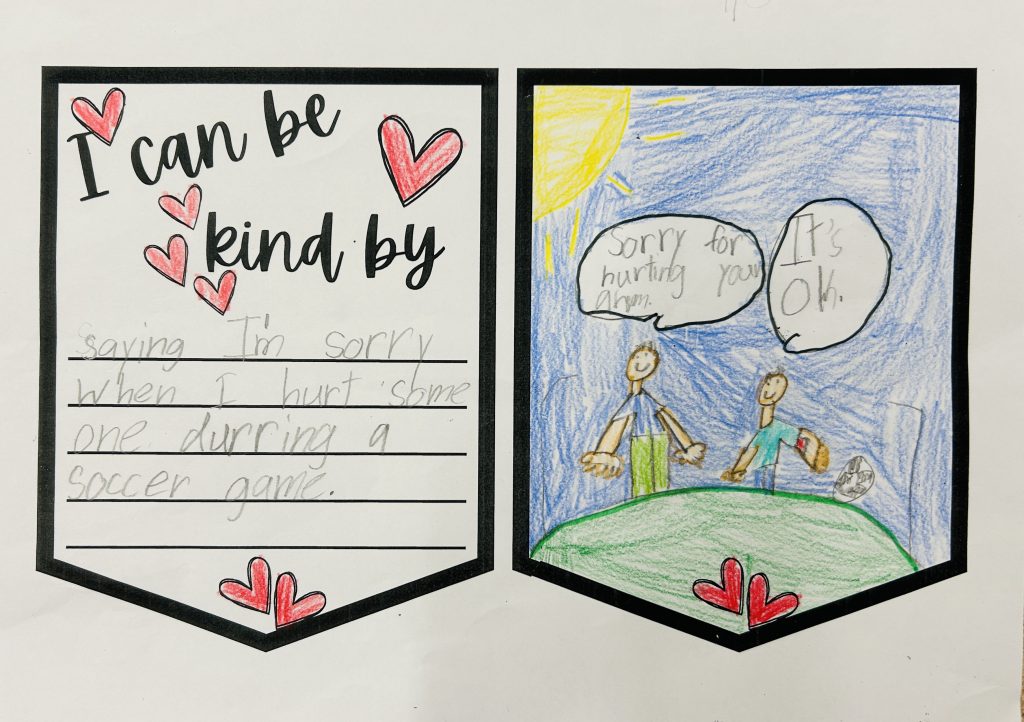 I can be
kind by
saying I'm sorry
when I hurt some
one durring a
soccer game.
Sorry for
hurting your
arum.
It's
Ok.